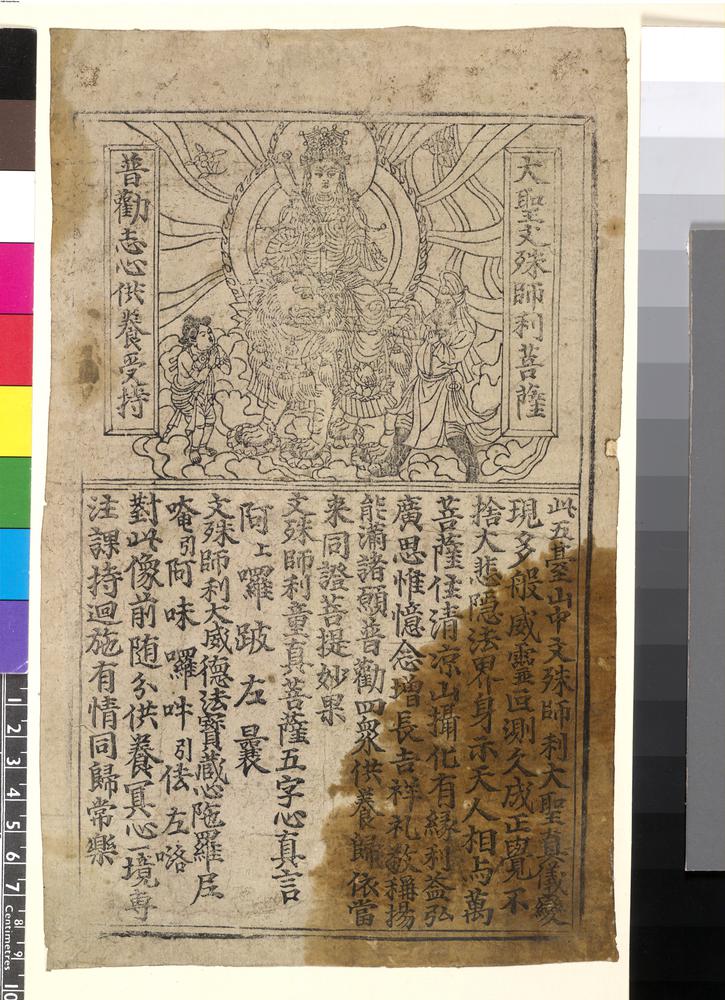 大聖文殊師利菩薩
普勸志心供養受持
此五臺山中文殊師利大聖真儀變
現多般威靈叵測久成正覺不
捨大悲隱法界身示天人相与萬
菩薩住清凉山攝化有緣利益弘
廣思惟憶念增長吉祥礼敬稱揚
能滿諸願普勸四衆供養歸依當
来同證菩提妙果
文殊師利童真菩薩五字心真言
阿上囉跛左曩
文殊師利大威德法寶藏心陁羅尼
唵引阿味囉吽引佉左咯
對此像前随分供養冥心一境專
注課持迴施有情同歸常樂
1
2
3
4
5
6
7
8
9
10
Centimetres